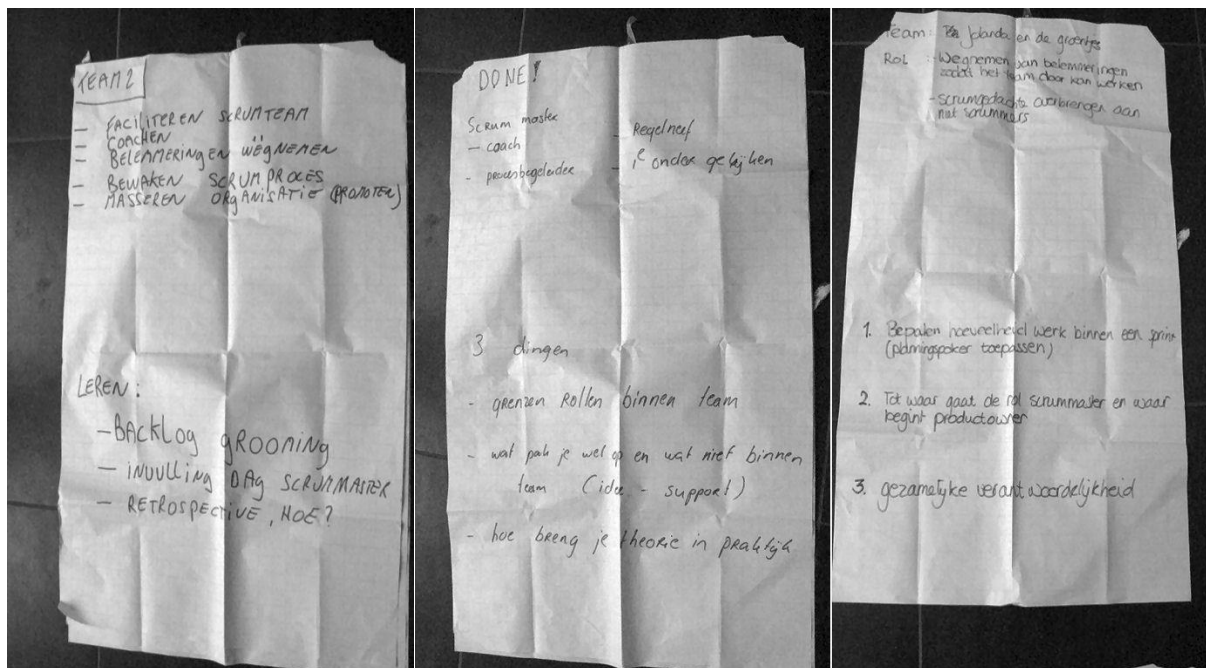 TEAM 2
- FACILITEREN SCRUMTEAM
- COACHEN
- BELEMMERINGEN WEGNEMEN
- BEWAKEN SCRUMPROCES
- MASSEREN ORGANISATIE (PROMOTEN)
LEREN:
- BACKLOG GROOMING
- INVULLING DAG SCRUMMASTER
- RETROSPECTIVE, HOE?
DONE!
Scrum master
- coach
- procesbegeleider
- Regelneef
- 1e onder gelijken
3 dingen
- grenzen Rollen binnen team
- wat pak je wel op en wat niet binnen
team ( - support)
- hoe breng je theorie in praktijk
Team: Jolanda en de groentjes
Rol : - Wegnemen van belemmeringen
zodat het team door kan werken
- scrumgedachte overbrengen aan
niet scrummers
1. Bepalen hoeveelheid werk binnen een sprint
(planningspoker toepassen)
2. Tot waar gaat de rol scrummaster en waar
begint productowner
3. gezamelijke verantwoordelijkheid